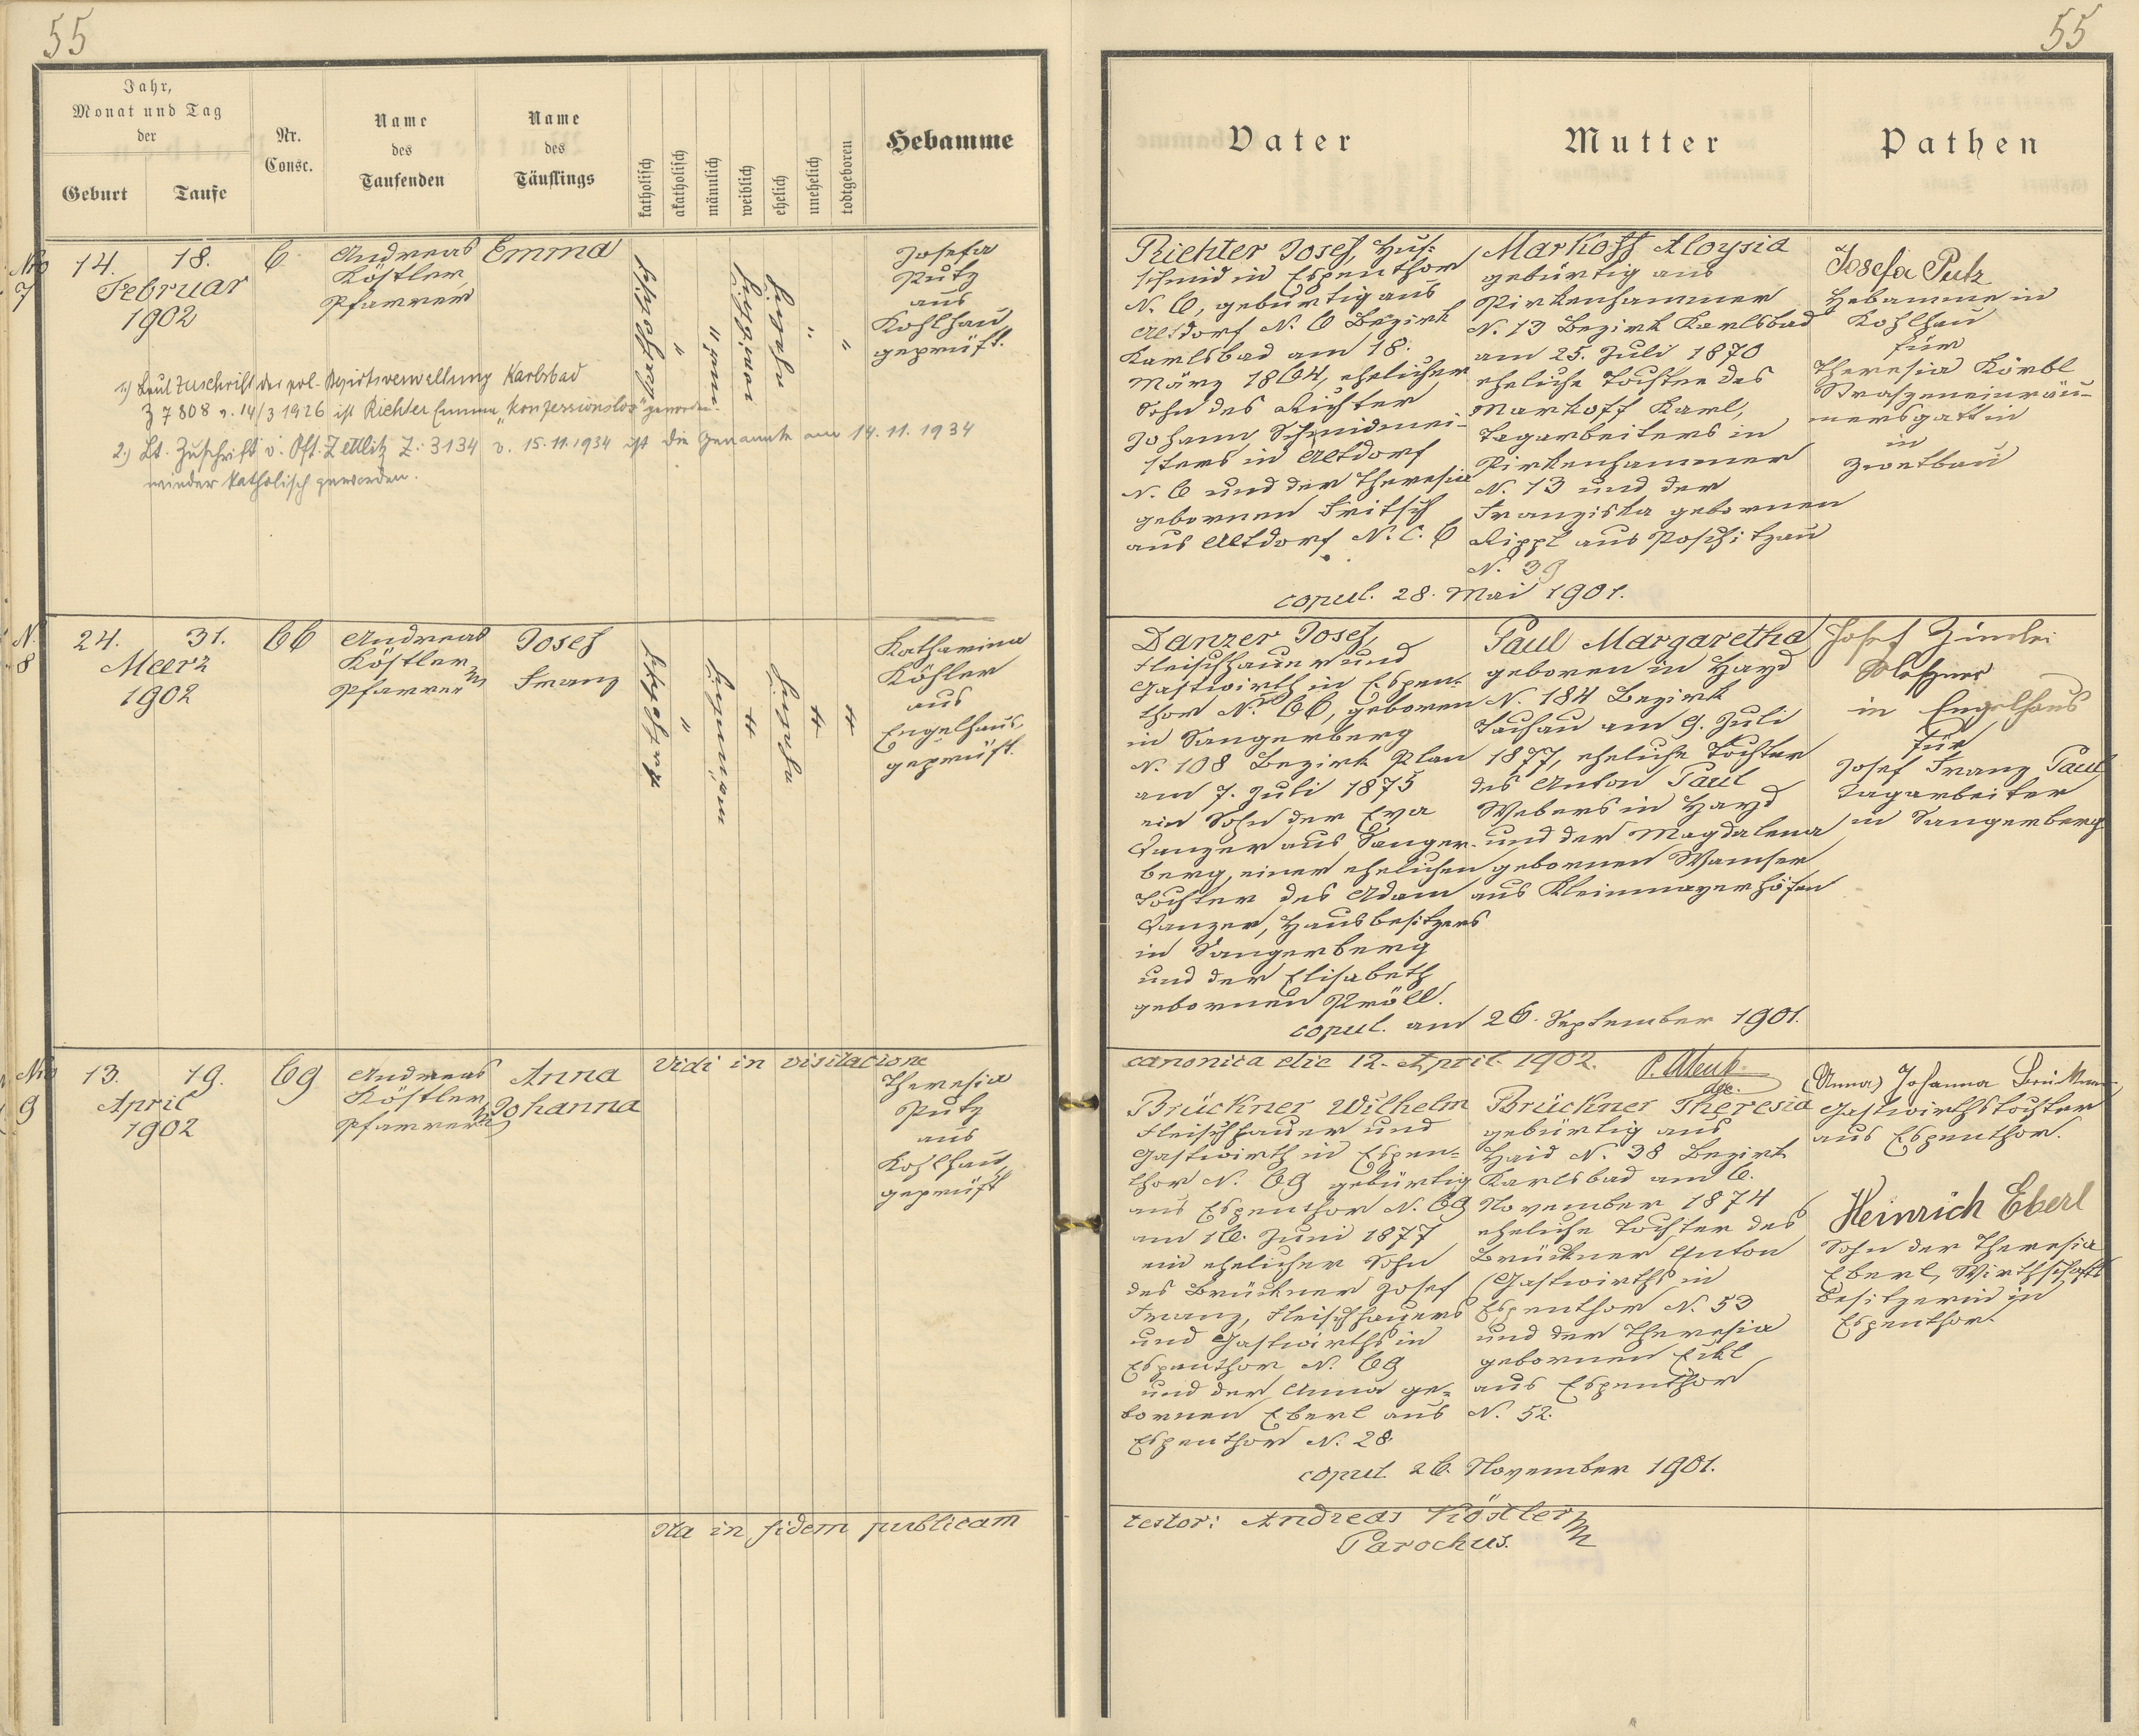 55
55
Jahr,
Monat und Tag
der
Geburt
Taufe
Nr.
Conse.
Name
des
Taufenden
Name
des
Täuflings
katholisch
akatholisch
männlich
weiblich
ehelich
unehelich
todtgeboren
Hebamme
Vater
Mutter
Pathen
Nro
7
14. 18.
Februar
1902
6
Andreas
Köstler,
Pfarrer
Emma
katholisch
"
"
weiblich
ehelich
"
"
Josefa
Putz
aus
Kohlhau
geprüft.
1.) Laut Zuschrift der pol. Bezirksverwaltung Karlsbad
Z 7808 v. 14/3 1926 ist Richter Emma "konfessionslos" geworden.
2.) Lt. Zuschrift v. Pft. Zettlitz Z: 3134 v. 15.11.1934 ist die Genannte am 14.11.1934
wieder katholisch geworden.
Richter Josef, Huf-
schmid in Espenthor
N. 6, gebürtig aus
Altdorf N. 6 Bezirk
Karlsbad am 18.
März 1864, ehelicher
Sohn des Richter
Johann, Schmidmei-
sters in Altdorf
N. 6 und der Theresia
gebornen Fritsch
aus Altdorf N. C. 6
Markoff Aloysia
gebürtig aus
Pirkenhammer
N. 13 Bezirk Karlsbad
am 25. Juli 1870
eheliche Tochter des
Markoff Karl,
Tagarbeiters in
Pirkenhammer
N. 13 und der
Franziska gebornen
Rippl aus Poschitzau
N. 39
copul. 28. Mai 1901.
Josefa Putz
Hebamme in
Kohlhau
für
Theresia Körbl
Straszeneinräu-
mersgattin
in
Zwetbau
N.
8
24. 31.
Maerz
1902
66
Andreas
Köstler
Pfarrer
Josef
Franz
katholisch
"
männlich
"
ehelich
"
"
Katharina
Köhler
aus
Engelhaus,
geprüft.
Danzer Josef,
Fleischhauer und
Gastwirth in Espen-
thor N. 66, geboren
in Sangerberg
N. 108 Bezirk Plan
am 7. Juli 1875
ein Sohn der Eva
Danzer aus Sanger-
berg, einer ehelichen
Tochter des Adam
Danzer, Hausbesitzers
in Sangerberg
und der Elisabeth
gebornen Pröll.
Paul Margaretha
geboren in Hayd
N. 184 Bezirk
Tachau am 9. Juli
1877, eheliche Tochter
des Anton Paul
Webers in Hayd
und der Magdalena
gebornen Wamser
aus Kleinmayerhöfen
copul. am 26. September 1901.
Josef
in Engelhaus
für
Josef Franz Paul
Tagarbeiter
in Sangerberg
Vidi in visitatione
canonica die 12. April 1902.
Nro
9
13. 19.
April
1902
69
Andreas
Köstler
Pfarrer
Anna
Johanna
Theresia
Putz
aus
Kohlhau
geprüft
Brückner Wilhelm
Fleischhauer und
Gastwirth in Espen-
thor N. 69 gebürtig
aus Espenthor N. 69
am 16. Juni 1877
ein ehelicher Sohn
des Brückner Josef
Franz, Fleischhauers
und Gastwirths in
Espenthor N. 69
und der Anna ge-
bornen Eberl aus
Espenthor N. 28.
Brückner Theresia
gebürtig aus
Haid N. 38 Bezirk
Karlsbad am 6.
November 1874
eheliche Tochter des
Brückner Anton
Gastwirths in
Espenthor N. 53
und der Theresia
gebornen Eckl
aus Espenthor
N. 52.
copul. 26. November 1901.
(Anna) Johanna Brückner,
Gastwirthstochter
aus Espenthor.
Heinrich Eberl
Sohn der Theresia
Eberl, Wirthschafts
besitzerin in
Espenthor.
Ita in fidem publicam
testor: Andreas Köstler
Parochus.